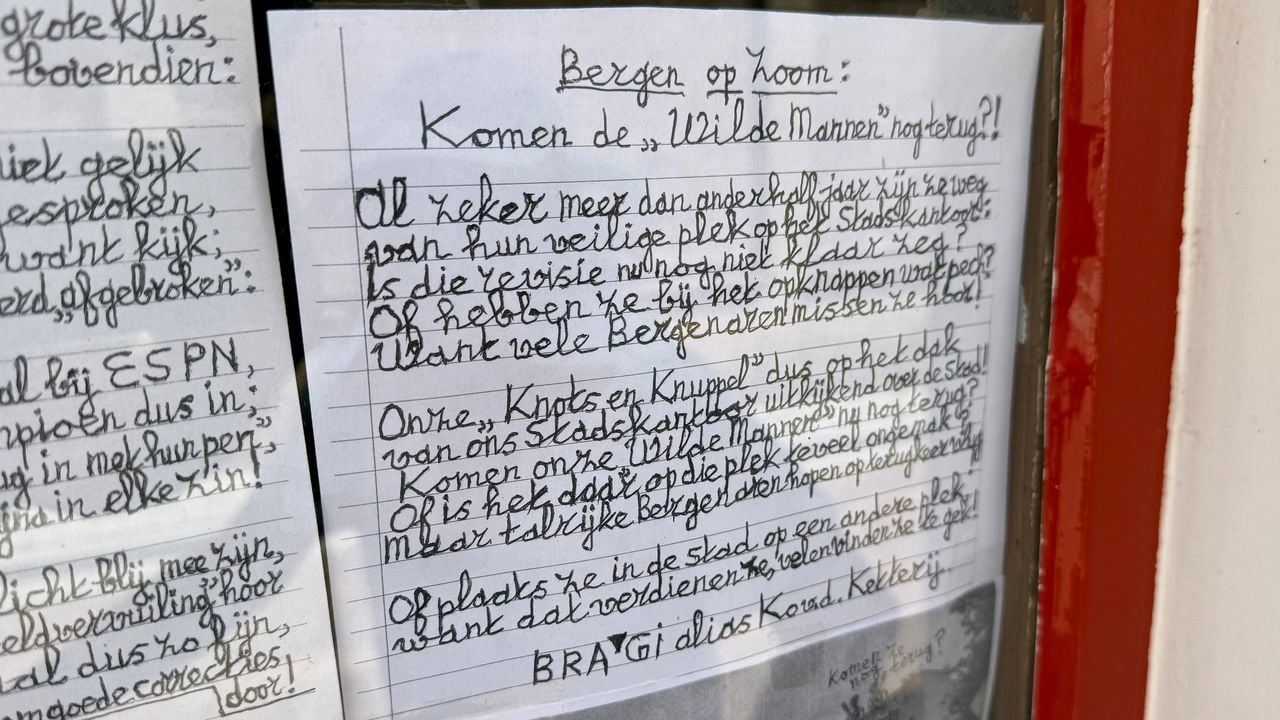 grote klus,
bovendien:
niet gelijk
esproken,
want kijk;
erd „afgebroken”:
al bij ESPN,
dus in;
in met hun pen,
in elke zin!
licht blij mee zijn,
eldvervuiling” hoor
al dus zo fijn,
goede correcties
door!
Bergen op Zoom:
Komen de „Wilde Mannen” nog terug?!
Al zeker meer dan anderhalf jaar zijn ze weg
van hun veilige plek op het Stadskantoor:
Is die revisie nu nog niet klaar zeg?
Of hebben ze bij het opknappen wat pech?
Want vele Bergenaren missen ze hoor!
Onze „Knots en Knuppel” dus op het dak
van ons Stadskantoor uitkijkend over de Stad!
Komen onze „Wilde Mannen” nu nog terug?
Of is het daar op die plek teveel ongemak?
maar talrijke Bergenaren hopen op terugkeer
Of plaats ze in de stad op een andere plek,
want dat verdienen ze, velen vinden ze te gek!
BRA▼Gi alias Koud. Ketterij.
Komen ze
nog terug?